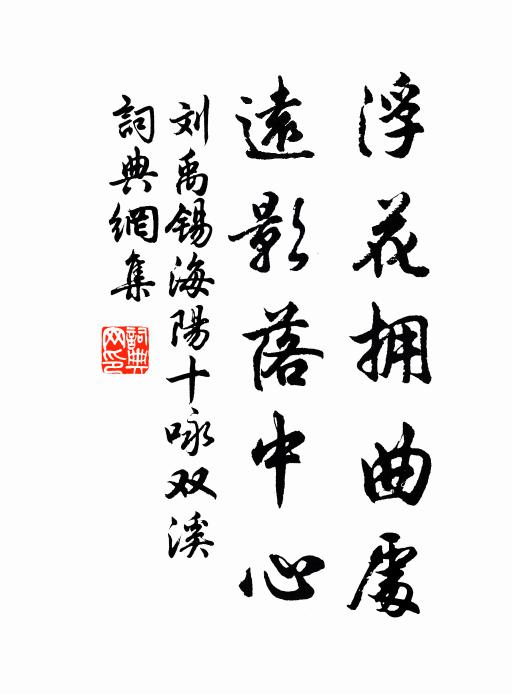 浮花拥曲處
遠影落中心
刘禹锡海陽十咏双溪
詞典網集
詞典网印